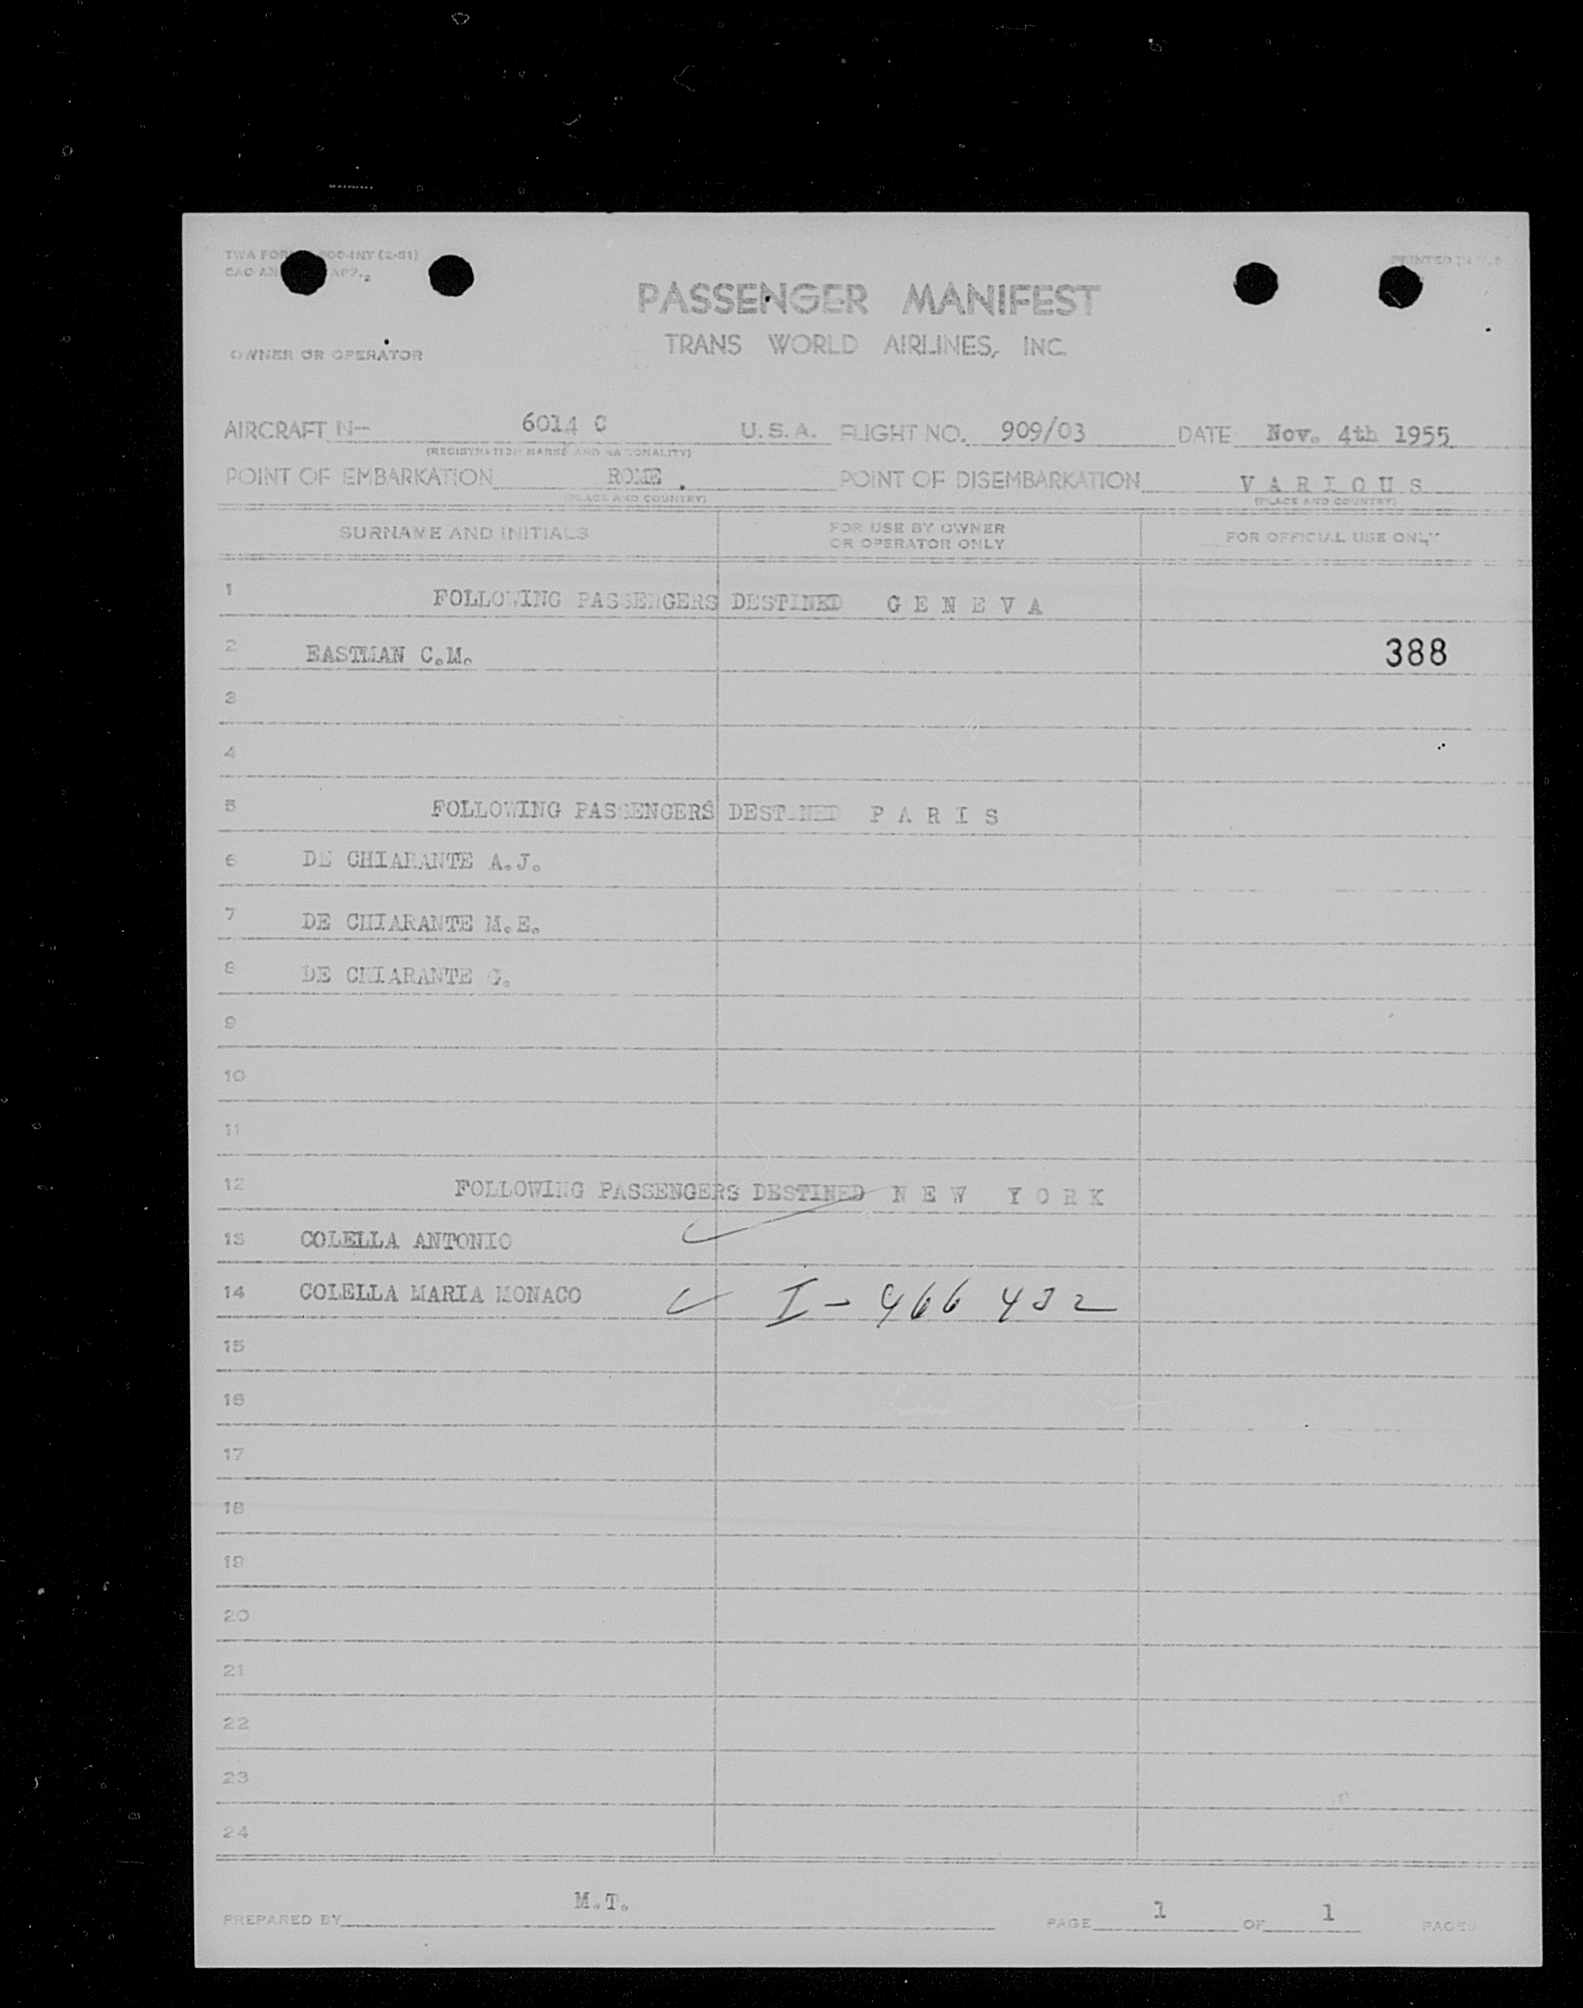 PASSENGER MANIFEST
TRANS WORLD AIRLINES, INC.
OWNER OR OPERATOR
AIRCRAFT N- 6014 C U.S.A. FLIGHT NO. 909/03 DATE Nov. 4th 1955
(REGISTRATION MARKS AND NATIONALITY)
POINT OF EMBARKATION ROME . POINT OF DISEMBARKATION V A R I O U S
(PLACE AND COUNTRY) (PLACE AND COUNTRY)
SURNAME AND INITIALS FOR USE BY OWNER OR OPERATOR ONLY FOR OFFICIAL USE ONLY
1 FOLLOWING PASSENGERS DESTINED G E N E V A
2 EASTMAN C.M. 388
3
4
5 FOLLOWING PASSENGERS DESTINED P A R I S
6 DE CHIARANTE A.J.
7 DE CHIARANTE M.E.
8 DE CHIARANTE G.
9
10
11
12 FOLLOWING PASSENGERS DESTINED N E W Y O R K
13 COLELLA ANTONIO
14 COLELLA MARIA MONACO I-966 432
15
16
17
18
19
20
21
22
23
24
PREPARED BY M.T. PAGE 1 OF 1 PAGES